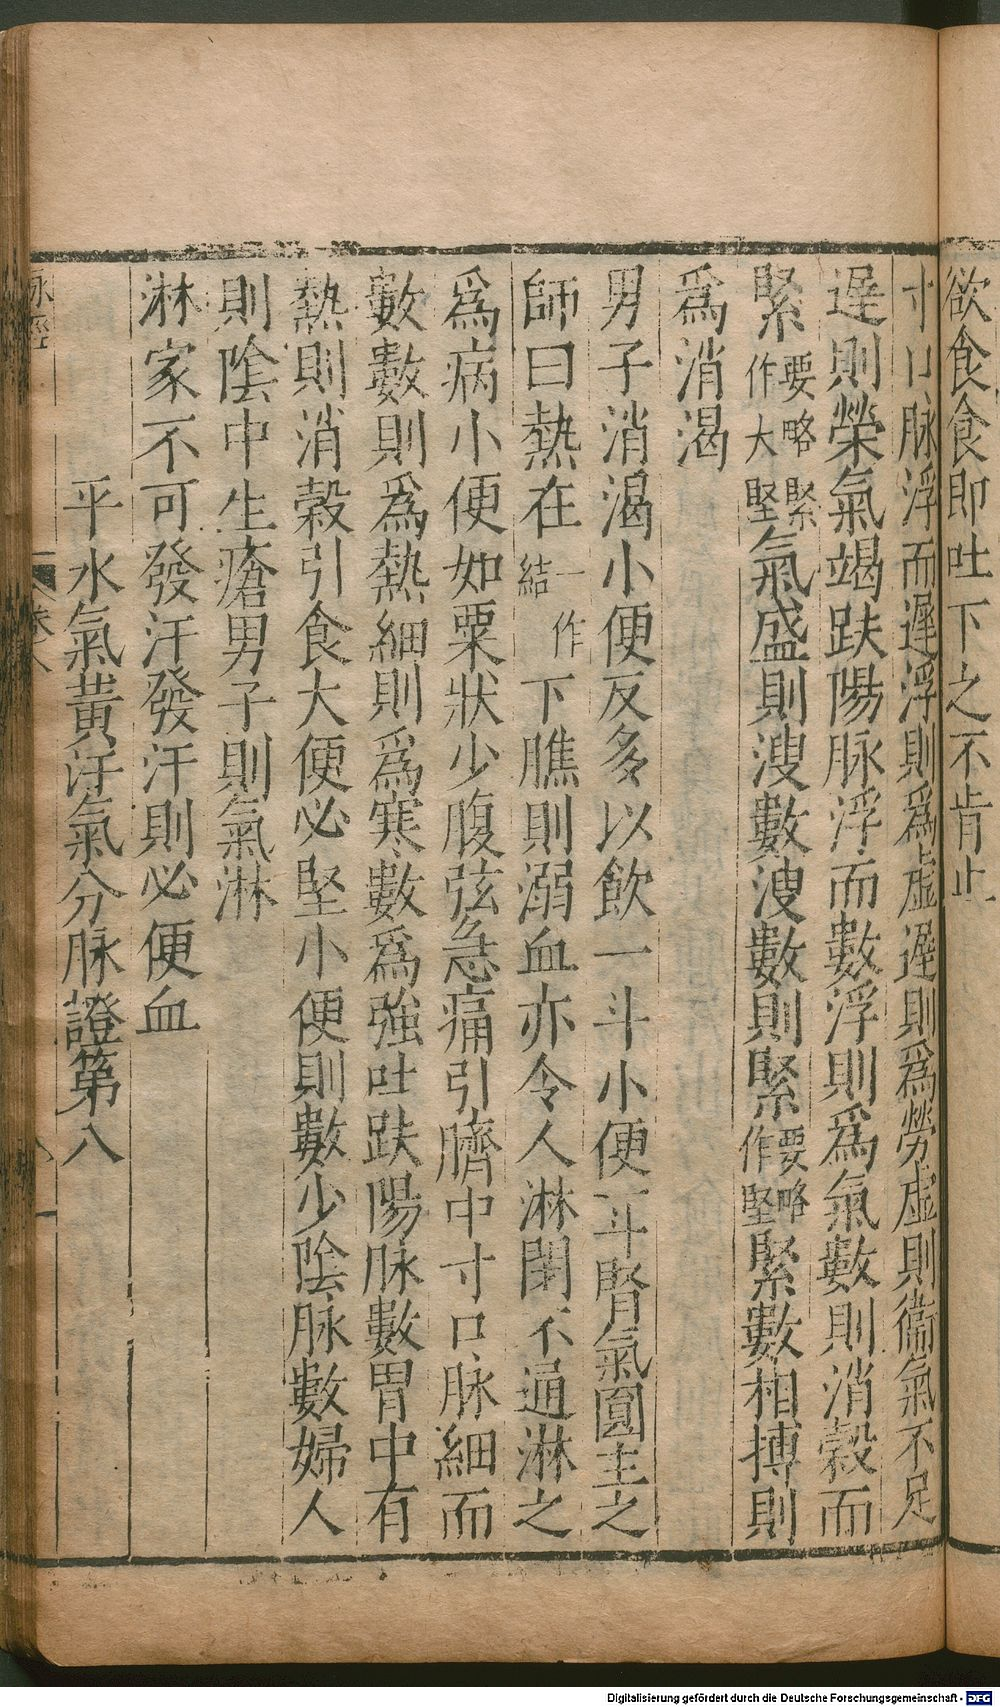 欲食食即吐下之不肯止
寸口脉浮而遲浮則爲虛遲則爲勞虛則衞氣不足
遲則榮氣竭趺陽脉浮而數浮則爲氣數則消穀而
緊要略緊作大堅氣盛則溲數溲數則緊要略作堅緊數相搏則
爲消渴
男子消渴小便反多以飲一斗小便一斗腎氣圓主之
師曰熱在一作結下膲則溺血亦令人淋閉不通淋之
爲病小便如粟狀少腹弦急痛引臍中寸口脉細而
數數則爲熱細則爲寒數爲強吐趺陽脉數胃中有
熱則消穀引食大便必堅小便則數少陰脉數婦人
則陰中生瘡男子則氣淋
淋家不可發汗發汗則必便血
平水氣黃汗氣分脉證第八
脉經
卷八
Digitalisierung gefördert durch die Deutsche Forschungsgemeinschaft - DFG